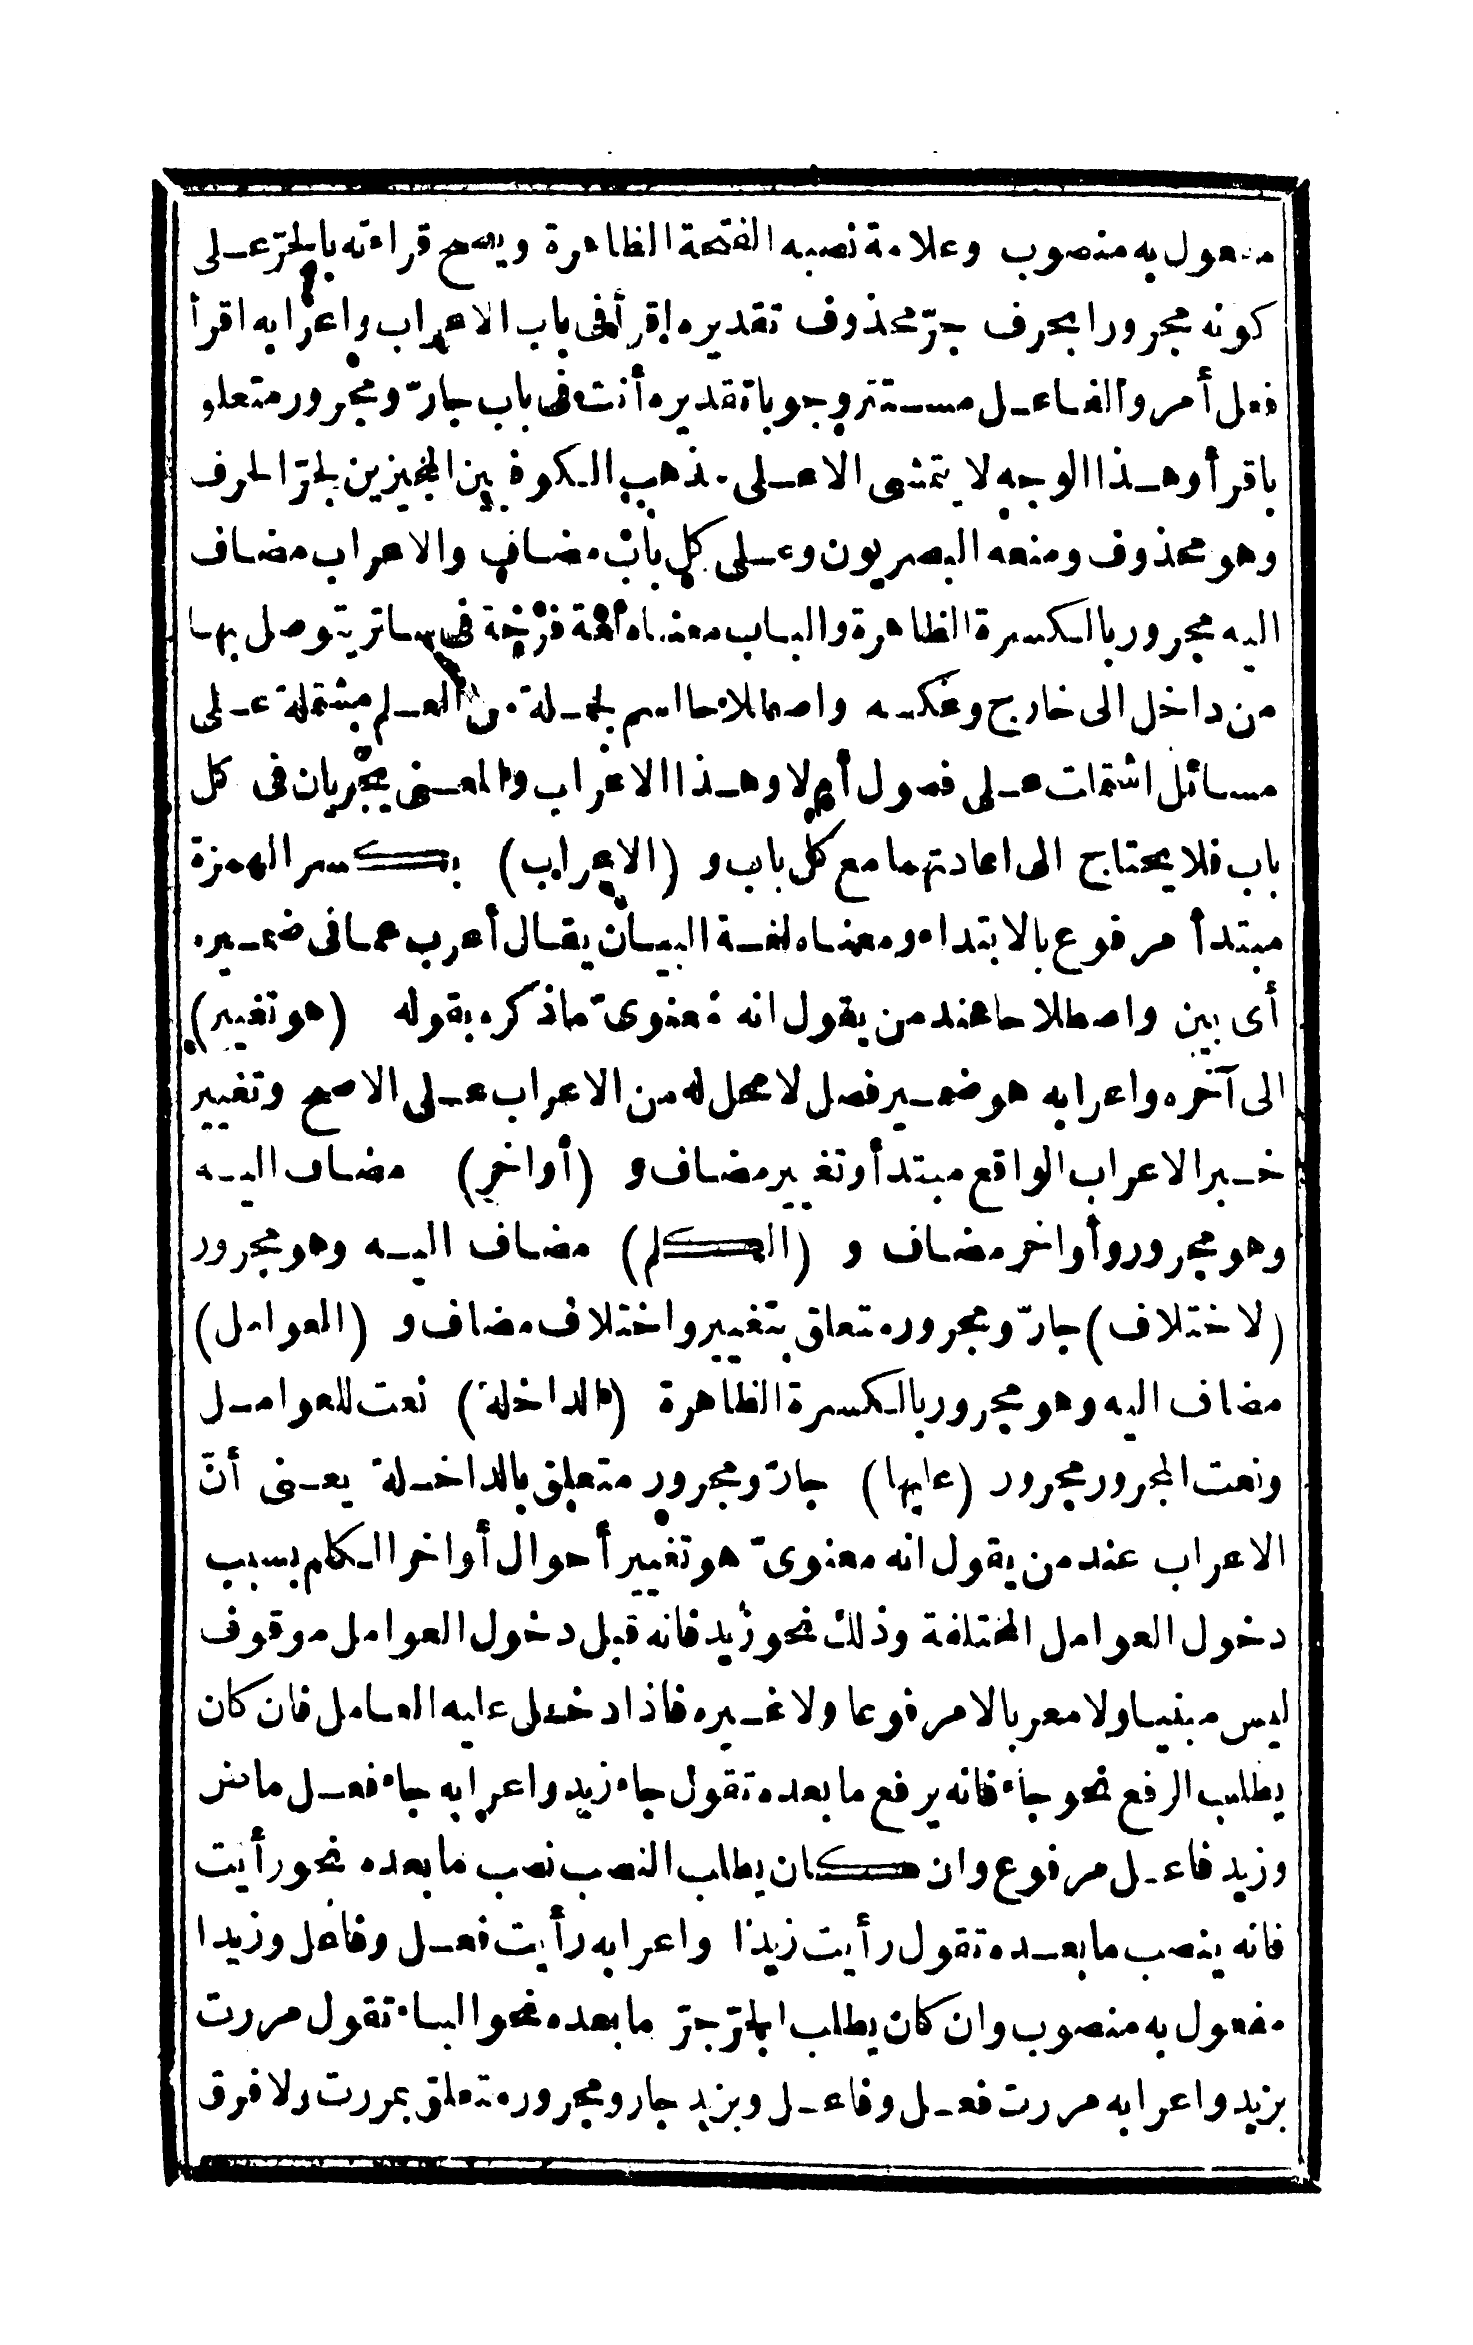 مفعول به منصوب وعلامة نصبه الفتحة الظاهرة ويصح قراءته بالجرّ على
كونه مجرورا بحرف جرّ محذوف تقديره اقرأ فى باب الاعراب واعرابه اقرأ
فعل أمر والفاعل مستتر وجوبا تقديره أنت فى باب جارّ ومجرور متعلق
باقرأ وهذا الوجه لا يتمشى الا على مذهب الكوفيين المجيزين لجرّ الحرف
وهو محذوف ومنعه البصريون وعلى كل باب مضاف والاعراب مضاف
اليه مجرور بالكسرة الظاهرة والباب معناه لغة فرجة فى ساتر يتوصل بها
من داخل الى خارج وعكسه واصطلاحا اسم لجملة من العلم مشتملة على
مسائل اشتملت على فصول أم لا وهذا الاعراب والمعنى يجريان فى كل
باب فلا يحتاج الى اعادتهما مع كل باب و (الاعراب) بكسر الهمزة
مبتدأ مرفوع بالابتداء ومعناه لغة البيان يقال أعرب عما فى ضميره
أى بين واصطلاحا عند من يقول انه معنوىّ ما ذكره بقوله (هو تغيير)
الى آخره واعرابه هو ضمير فصل لا محل له من الاعراب على الاصح وتغيير
خبر الاعراب الواقع مبتدأ وتغيير مضاف و (أواخر) مضاف اليه
وهو مجرور وأواخر مضاف و (الكلم) مضاف اليه وهو مجرور
(لاختلاف) جارّ ومجرور متعلق بتغيير واختلاف مضاف و (العوامل)
مضاف اليه وهو مجرور بالكسرة الظاهرة (الداخلة) نعت للعوامل
ونعت المجرور مجرور (عليها) جارّ ومجرور متعلق بالداخلة يعنى أنّ
الاعراب عند من يقول انه معنوىّ هو تغيير أحوال أواخر الكلم بسبب
دخول العوامل المختلفة وذلك نحو زيد فانه قبل دخول العوامل موقوف
ليس مبنيا ولا معربا لا مرفوعا ولا غيره فاذا دخل عليه العامل فان كان
يطلب الرفع نحو جاء فانه يرفع ما بعده تقول جاء زيد واعرابه جاء فعل ماض
وزيد فاعل مرفوع وان كان يطلب النصب نصب ما بعده نحو رأيت
فانه ينصب ما بعده تقول رأيت زيدا واعرابه رأيت فعل وفاعل وزيدا
مفعول به منصوب وان كان يطلب الجرّ جرّ ما بعده نحو الباء تقول مررت
بزيد واعرابه مررت فعل وفاعل وبزيد جار ومجرور متعلق بمررت ولا فرق